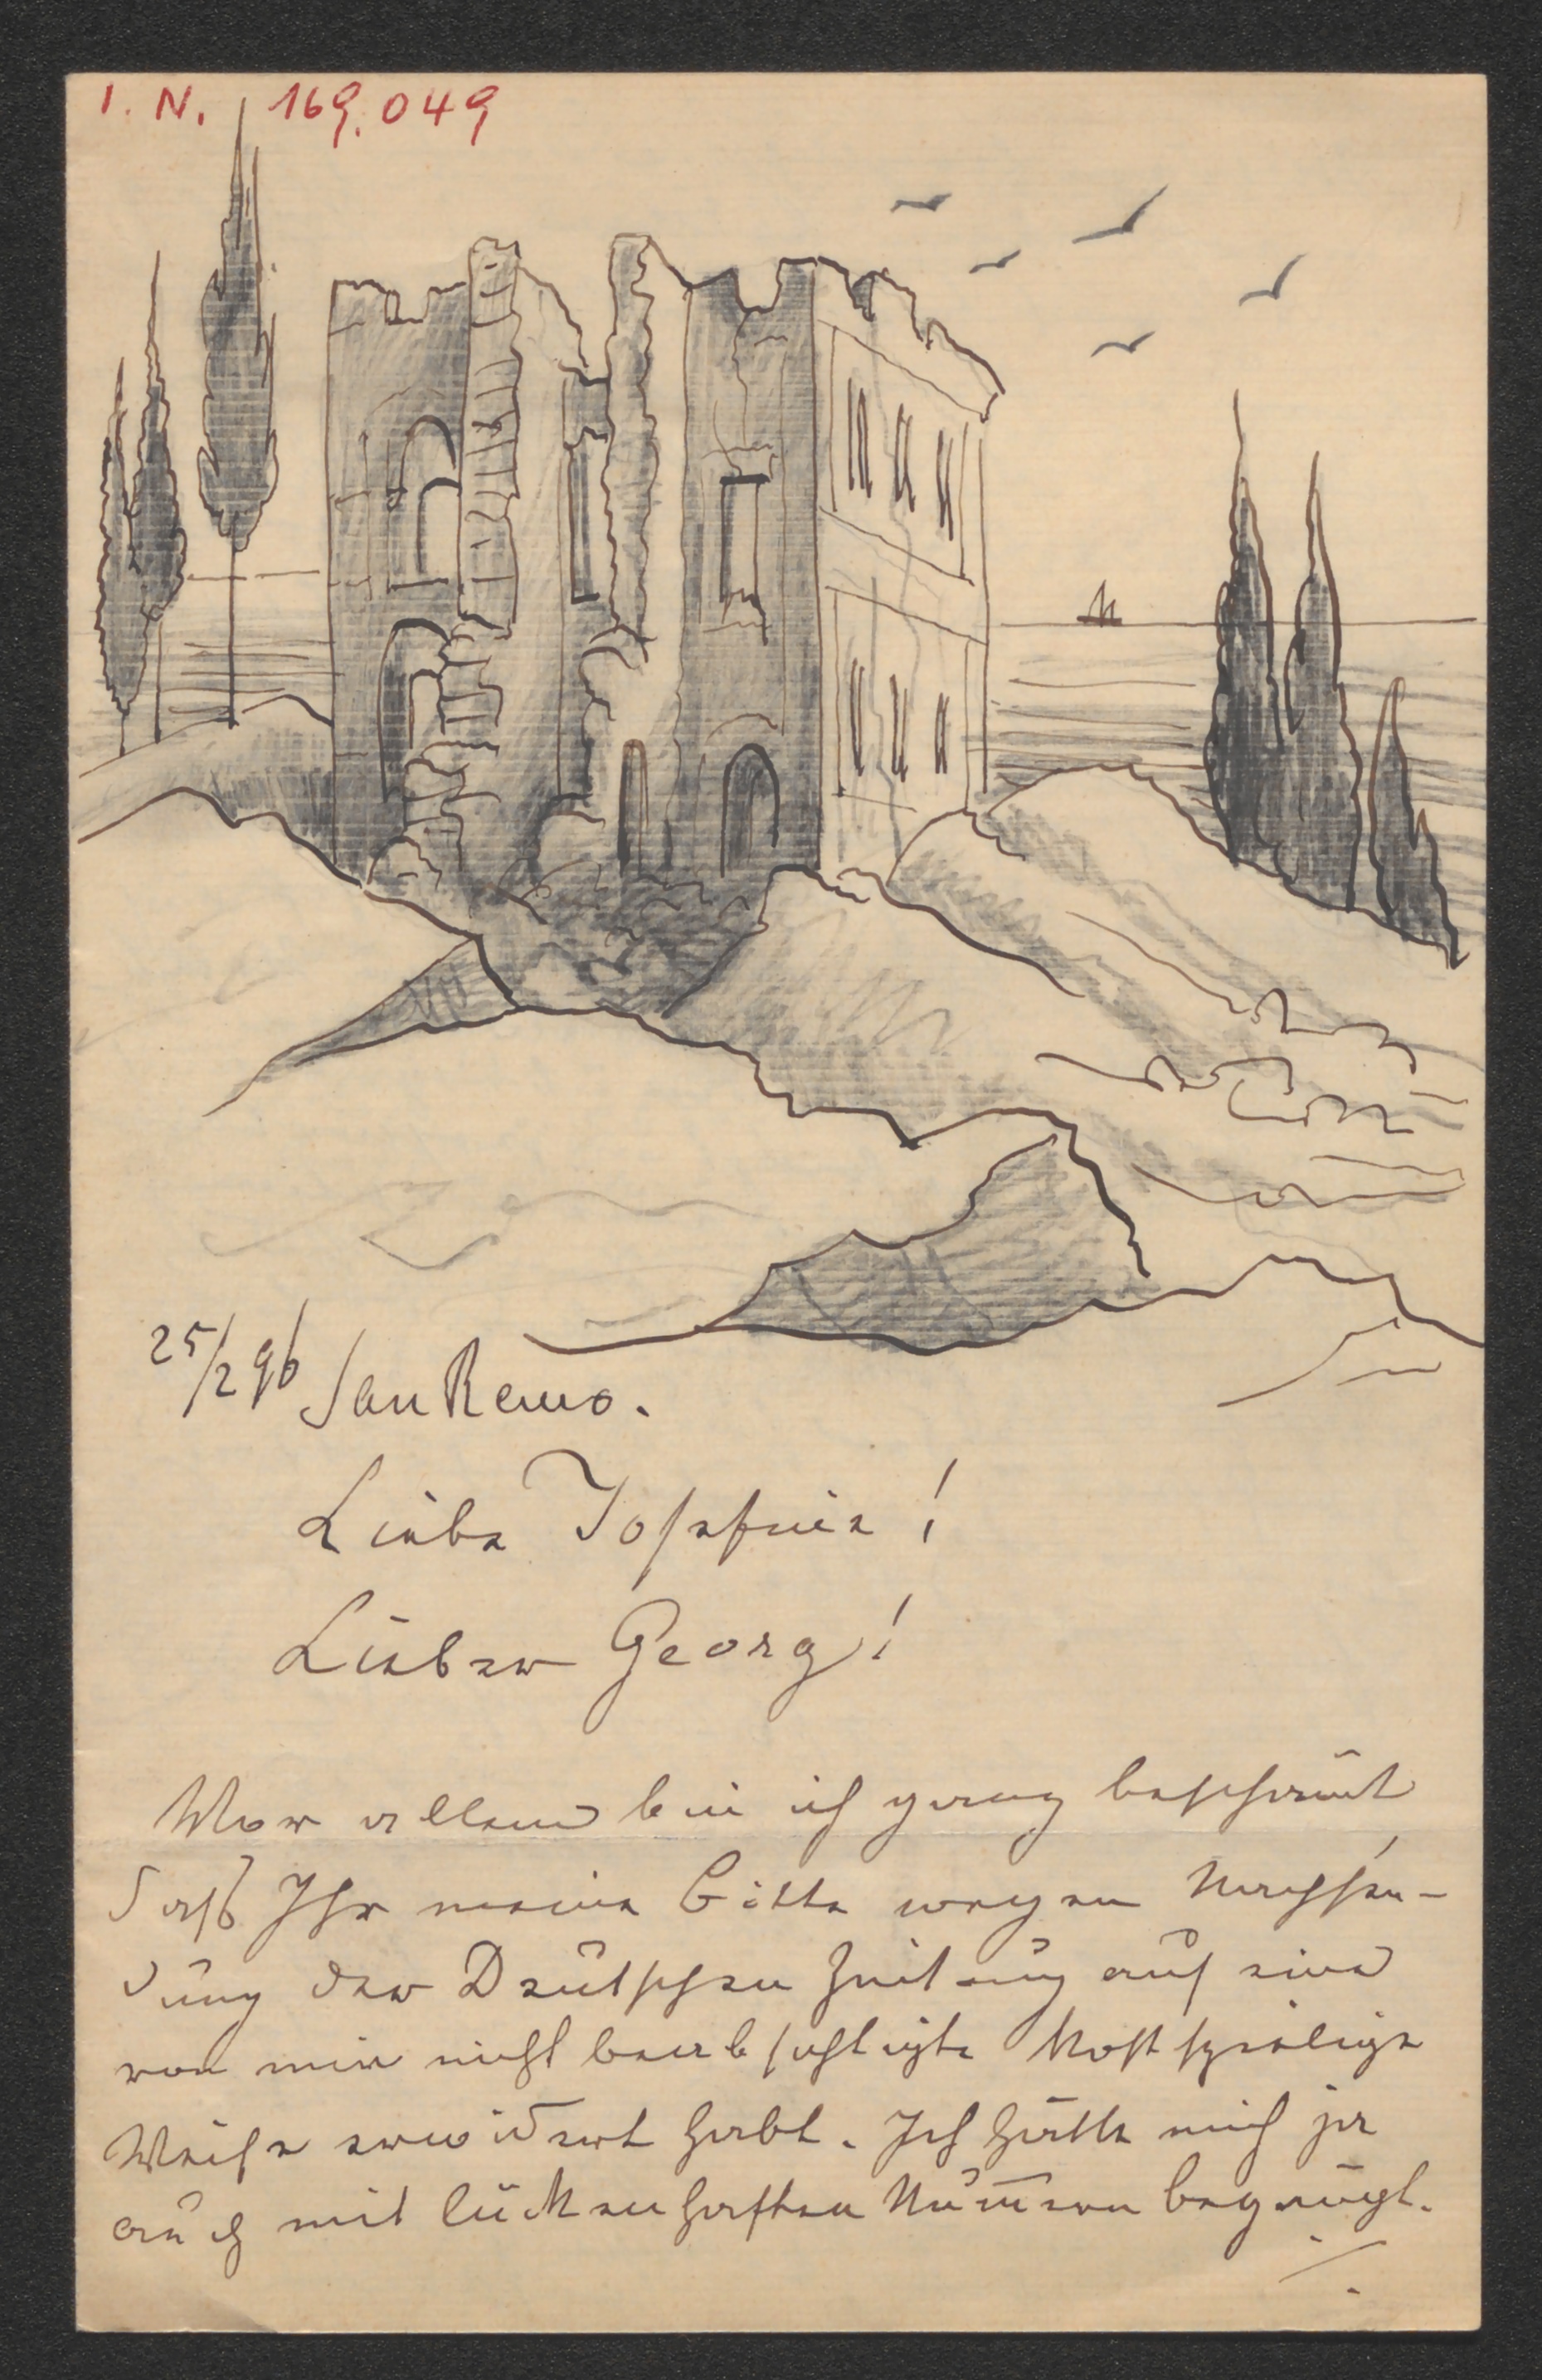 I. N. 169.049
25/2 96 San Remo.
Liebe Josefine!
Lieber Georg!
Vor allem bin ich ganz beschämt
daß Ihr meine Bitte wegen Nachsen-
dung der Deutschen Zeitung auf eine
von mir nicht beabsichtigte kostspielige
Weise erwidert habt. Ich hätte mich ja
auch mit lückenhaften Num̅ern begnügt.
./.